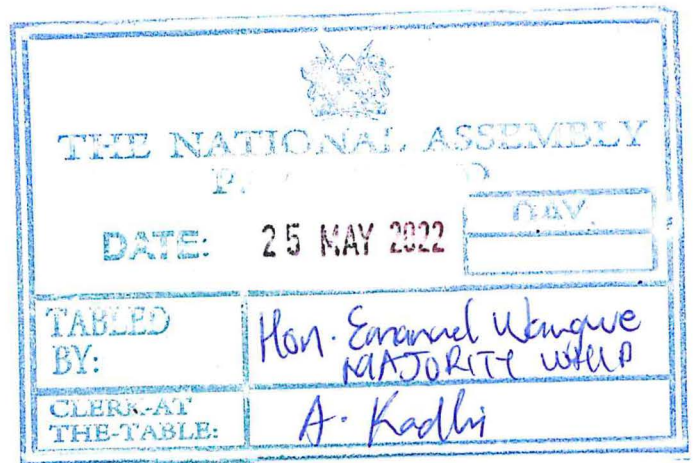 THE NATIONAL ASSEMBLY
DATE: 25 MAY 2022
DAY.
TABLED BY:
Hon. Emanuel Wangwe
MAJORITY WHIP
CLERK-AT THE-TABLE:
A. Kadhi